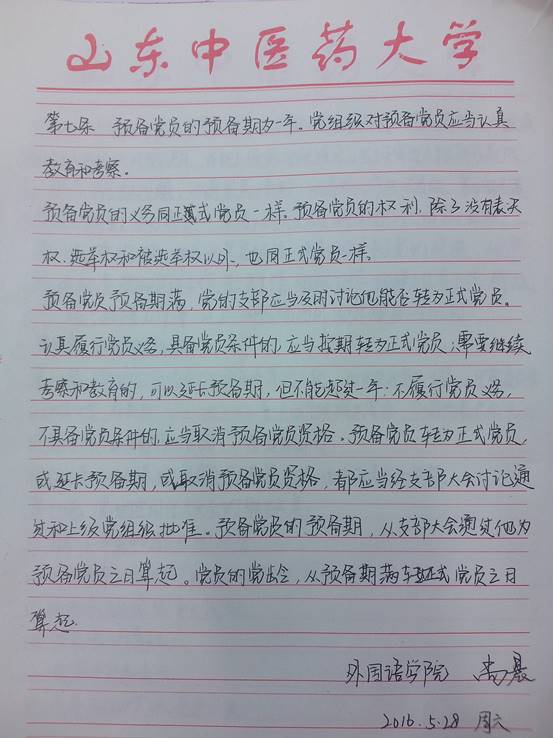 山东中医药大学
第七条 预备党员的预备期为一年。党组织对预备党员应当认真
教育和考察。
预备党员的义务同正式党员一样。预备党员的权利,除了没有表决
权、选举权和被选举权以外,也同正式党员一样。
预备党员预备期满,党的支部应当及时讨论他能否转为正式党员。
认真履行党员义务,具备党员条件的,应当按期转为正式党员;需要继续
考察和教育的,可以延长预备期,但不能超过一年;不履行党员义务,
不具备党员条件的,应当取消预备党员资格。预备党员转为正式党员,
或延长预备期,或取消预备党员资格,都应当经支部大会讨论通
过和上级党组织批准。预备党员的预备期,从支部大会通过他为
预备党员之日算起。党员的党龄,从预备期满转为正式党员之日
算起。
外国语学院 尚晨
2016.5.28 周六